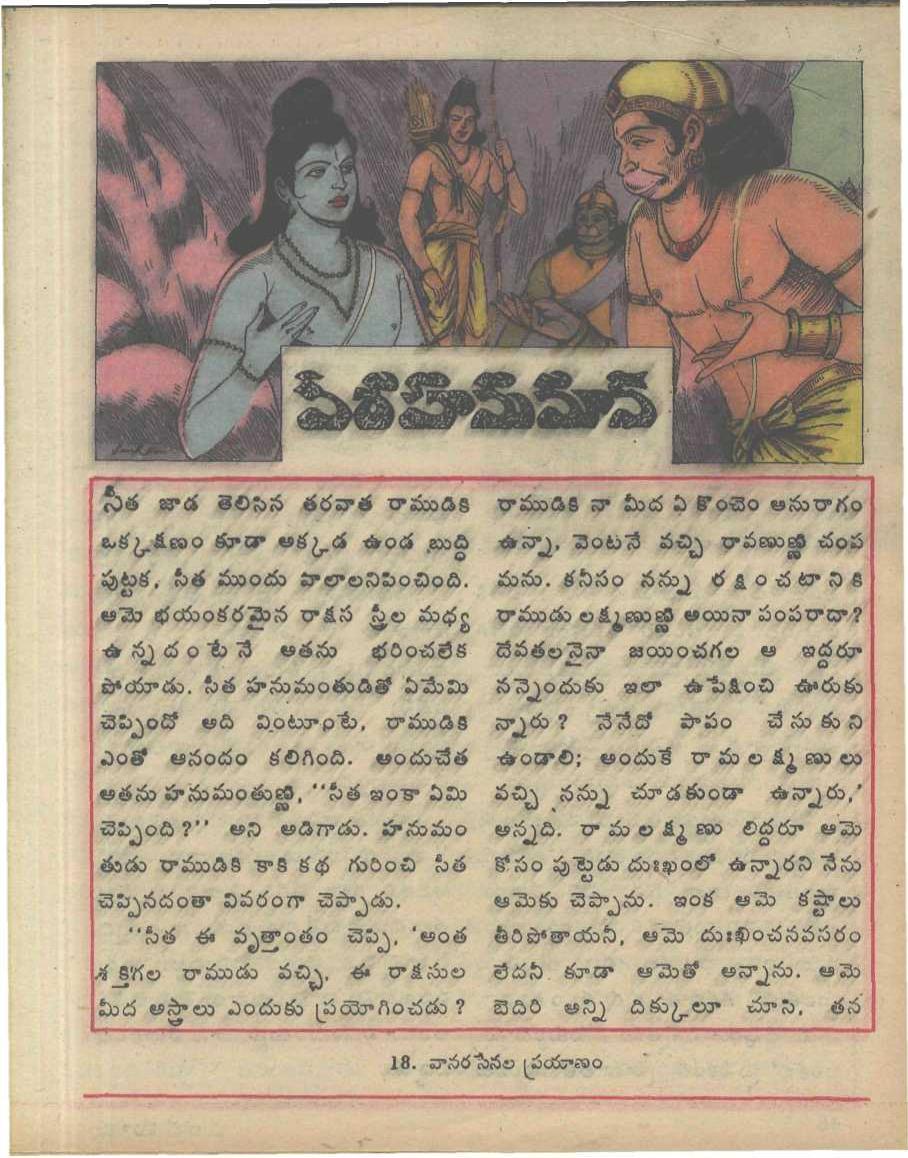 వీరహనుమాన్
సీత జాడ తెలిసిన తరవాత రాముడికి
ఒక్కక్షణం కూడా అక్కడ ఉండ బుద్ధి
పుట్టక, సీత ముందు వాలాలనిపించింది.
ఆమె భయంకరమైన రాక్షస స్త్రీల మధ్య
ఉన్నదంటేనే అతను భరించలేక
పోయాడు. సీత హనుమంతుడితో ఏమేమి
చెప్పిందో అది వింటూంటే, రాముడికి
ఎంతో ఆనందం కలిగింది. అందుచేత
అతను హనుమంతుణ్ణి, ‘‘సీత ఇంకా ఏమి
చెప్పింది?’’ అని అడిగాడు. హనుమం
తుడు రాముడికి కాకి కథ గురించి సీత
చెప్పినదంతా వివరంగా చెప్పాడు.
‘‘సీత ఈ వృత్తాంతం చెప్పి, ‘అంత
శక్తిగల రాముడు వచ్చి, ఈ రాక్షసుల
మీద అస్త్రాలు ఎందుకు ప్రయోగించడు?
రాముడికి నా మీద ఏ కొంచెం అనురాగం
ఉన్నా, వెంటనే వచ్చి రావణుణ్ణి చంప
మను. కనీసం నన్ను రక్షించటానికి
రాముడు లక్ష్మణుణ్ణి అయినా పంపరాదా?
దేవతలనైనా జయించగల ఆ ఇద్దరూ
నన్నెందుకు ఇలా ఉపేక్షించి ఊరుకు
న్నారు? నేనేదో పాపం చేసుకుని
ఉండాలి; అందుకే రామలక్ష్మణులు
వచ్చి నన్ను చూడకుండా ఉన్నారు,’
అన్నది. రామలక్ష్మణు లిద్దరూ ఆమె
కోసం పుట్టెడు దుఃఖంలో ఉన్నారని నేను
ఆమెకు చెప్పాను. ఇంక ఆమె కష్టాలు
తీరిపోతాయనీ, ఆమె దుఃఖించనవసరం
లేదనీ కూడా ఆమెతో అన్నాను. ఆమె
బెదిరి అన్ని దిక్కులూ చూసి, తన
18. వానరసేనల ప్రయాణం